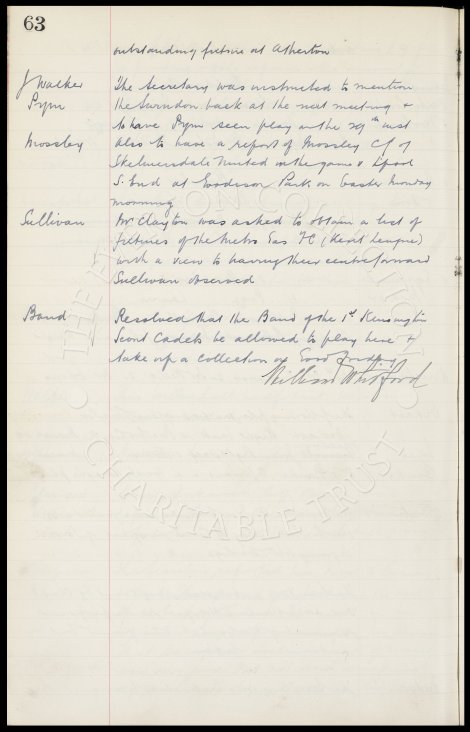 63
outstanding fixture at Atherton
J Walker The Secretary was instructed to mention
Pym the Swindon back at the next meeting &
to have Pym seen play on the 29th inst
Mossley Also to have a report of Mossley CF of
Skelmersdale United in the game v Lpool
S. End at Goodison Park on Easter Monday
morning
Sullivan Mr Clayton was asked to obtain a list of
fixtures of the Metro Gas FC (Kent League)
with a view to having their centre forward
Sullivan observed
Band Resolved that the Band of the 1st Kensington
Scout Cadets be allowed to play here &
take up a collection on Good Friday
William Whitford
THE EVERTON COLLECTION
CHARITABLE TRUST